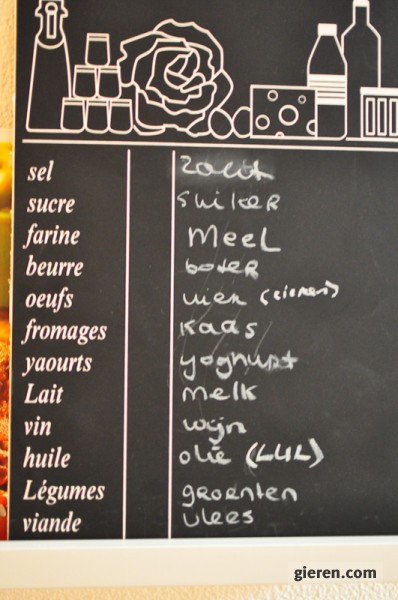 sel zout
sucre suiker
farine Meel
beurre boter
oeufs uien (eieren)
fromages kaas
yaourts yoghurt
Lait melk
vin wijn
huile olie (LUL)
Légumes groenten
viande vlees
gieren.com